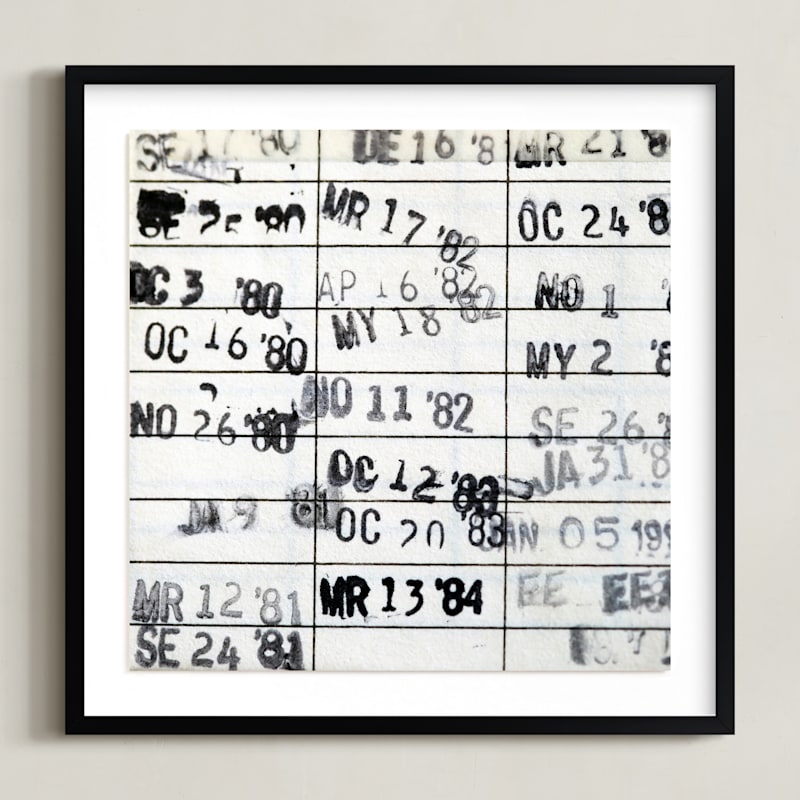 SE 17 '80
SE 25 '80
OC 3 '80
OC 16 '80
NO 26 '80
JA 9 '81
MR 12 '81
SE 24 '81
DE 16 '8
MR 17 '82
AP 16 '82
MY 18 82
NO 11 '82
OC 12 '83
OC 20 '83
MR 13 '84
MR 21 '8
OC 24 '8
NO 1 '
MY 2 '8
SE 26 '8
JA 31 '8
JAN 05 199